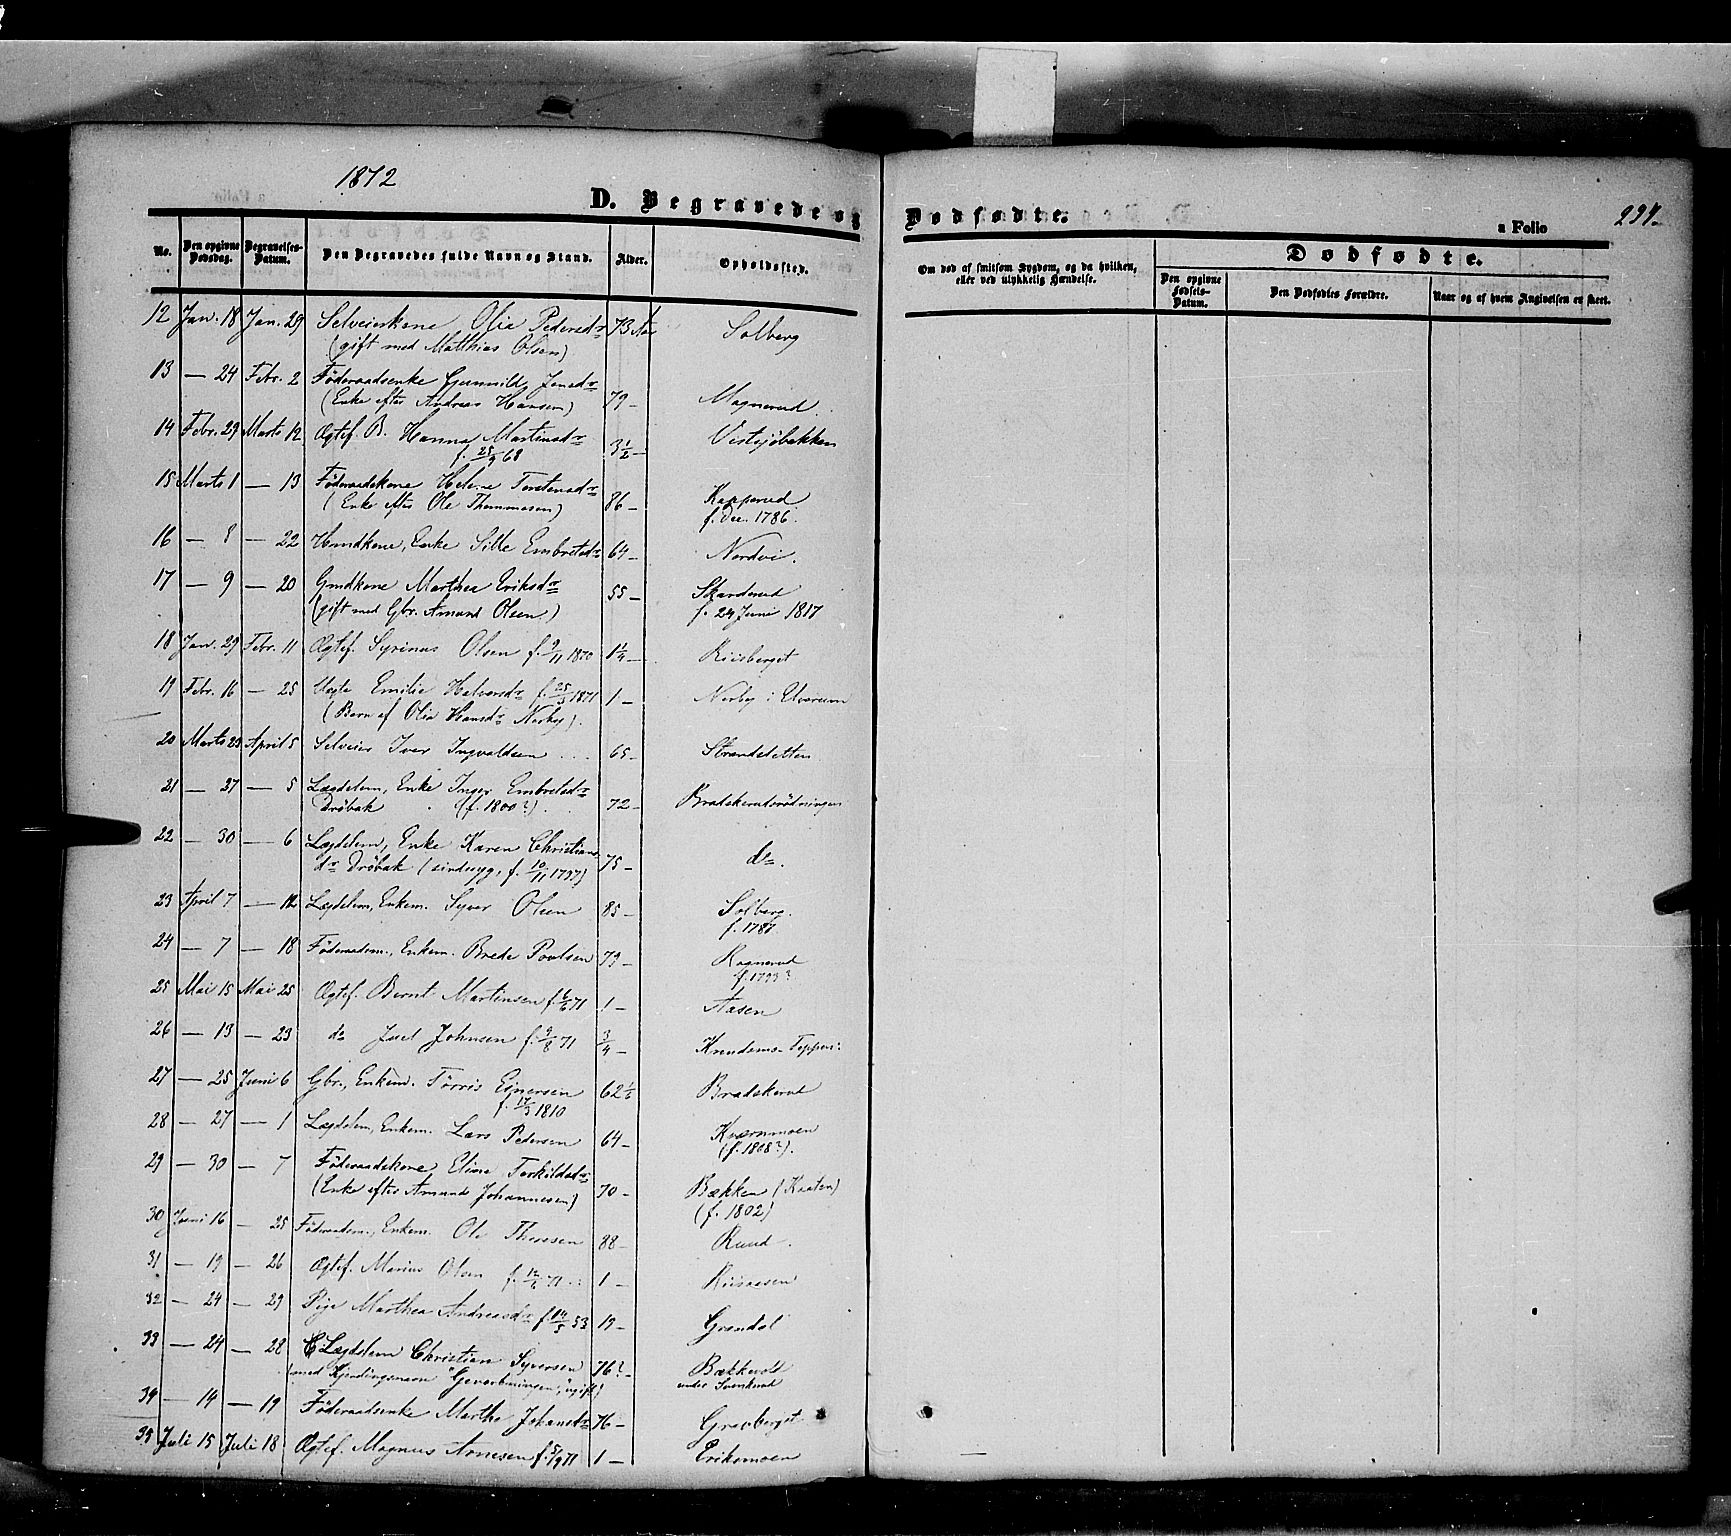 1872
D. Begravede og Dødfødte.
a Folio 237.
No. Den opgivne Dødsdag. Begravelses-Datum. Den Begravedes fulde Navn og Stand. Alder. Opholdssted. Om død af smitsom Sygdom, og da hvilken, eller ved ulykkelig Hændelse. Dødfødte.
Den opgivne Fødsels-Datum. Den Dødfødtes Forældre. Naar og af hvem Angivelsen er skeet.
12 Jan. 18 Jan. 29 Selveierkone Olia Pedersdr 73 Aar Solberg
(gift med Matthias Olsen)
13 — 24 Febr. 2 Føderaadsenke Gunnild Jensdr
(Enke efter Andreas Hansen) 79 — Magnerud.
14 Febr. 29 Marts 12 Ægtef. B. Hanna Martinsdr 3½ — Vestsjöbakken
f. 25/9 68
15 Marts 1 — 13 Føderaadskone Helene Torstensdr
(Enke efter Ole Thommesen) 86 — Kapperud
f. Dec. 1786.
16 — 8 — 22 Huusdkone, Enke Sille Embretsdr 64 — Nordvi.
17 — 9 — 20 Gmdkone Marthea Eriksdr 55 — Skarderud
(gift med Gbr. Amund Olsen) f. 24 Juni 1817
18 Jan. 29 Febr. 11 Ægtef. Syrinus Olsen f. 9/11 1870 1¼ — Riisberget
19 Febr. 16 — 25 Uægte Emilie Halvorsdr f. 25/3 1871 1 — Nerby i Elverum
(Barn af Olia Hansdr Nerby).
20 Marts 23 April 5 Selveier Iver Ingvaldsen 65 — Strandsletten
21 — 27 — 5 Lægdslem, Enke Inger Embretsdr
Dröbak (f. 1800?). 72 — Bradskerudsrödningen
22 — 30 — 6 Lægdslem, Enke Karen Christians
dr Dröbak (sindssyg, f. 10/11 1797) 75 — do.
23 April 7 — 12 Lægdslem, Enkem. Syver Olsen 85 — Solberg.
f. 1787
24 — 7 — 18 Føderaadsm., Enkem. Brede Poulsen 79 — Kagnerud
f. 1793?
25 Mai 15 Mai 25 Ægtef. Bernt Martinsen f. 71 1 — Aasen
26 — 13 — 23 do Juel Johnsen f. 9/8 71 ¾ —
27 — 25 Juni 6 Gbr., Enkem. Törris Ejnersen 62½ Bradskerud
f. 17/3 1810
28 — 27 — 1 Lægdslem, Enkem. Lars Pedersen 64 — Kværnmoen
(f. 1808?).
29 — 30 — 7 Føderaadskone Eline Torkildsdr
(Enke efter Amund Johannesen) 70 — Bækken (Kaaten)
(f. 1802)
30 Juni 16 — 25 Føderaadsm., Enkem. Ole Thoresen 88 — Ruud.
31 — 19 — 26 Ægtef. Marius Olsen f. 71 1 — Riisaasen
32 — 24 — 29 Pige Marthea Andreasdr f. 14/5 53 19 — Grendal
33 — 24 — 28 Lægdslem Christian Syversen 76? — Bækkevold
(med Kjendingsnavn ", ugift) under
34 — 14 — 19 Føderaadsenke Marthe Johansdr 76 — Gravberget
35 Juli 15 Juli 18 Ægtef. Magnus Arnesen f. 5/9 71 1 — Eriksmoen